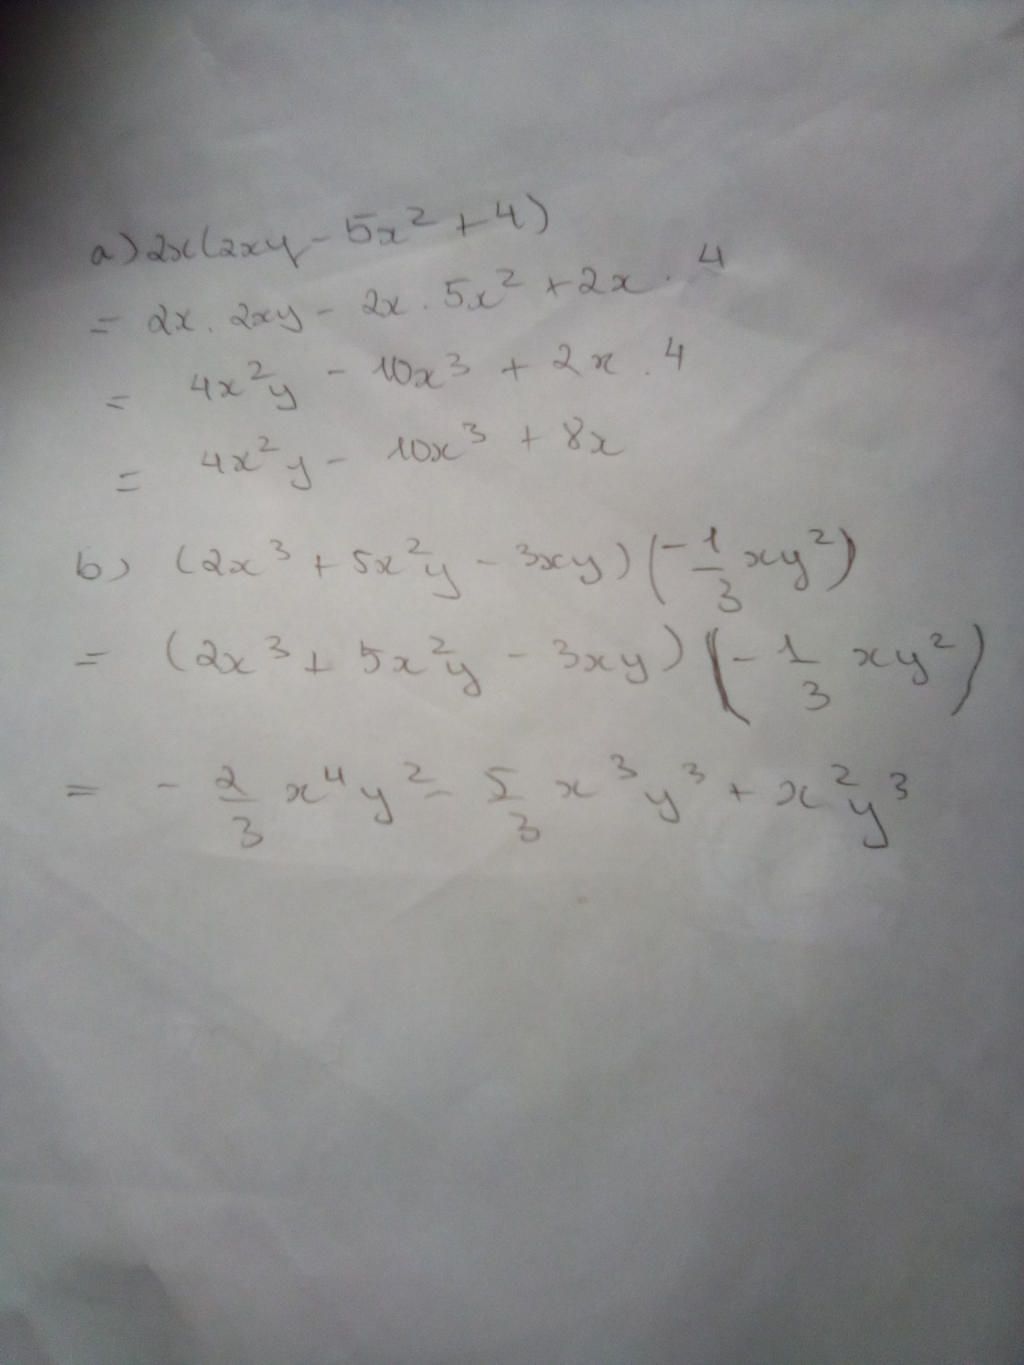 a) 2x(2xy - 5x² + 4)
= 2x . 2xy - 2x . 5x² + 2x . 4
= 4x²y - 10x³ + 2x . 4
= 4x²y - 10x³ + 8x
b) (2x³ + 5x²y - 3xy) (-1/3 xy²)
= (2x³ + 5x²y - 3xy) (-1/3 xy²)
= - 2/3 x⁴y² - 5/3 x³y³ + x²y³